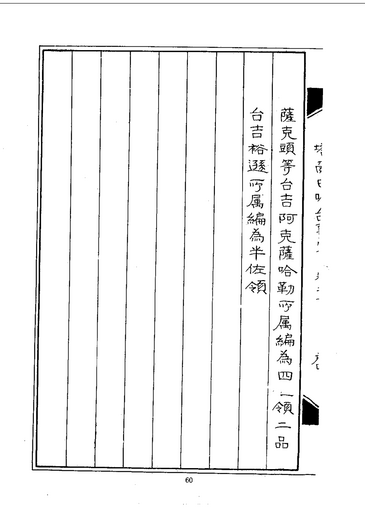 薩克頭等台吉阿克薩哈勒所属編為四一領二品
台吉裕遜所属編為半佐領
60